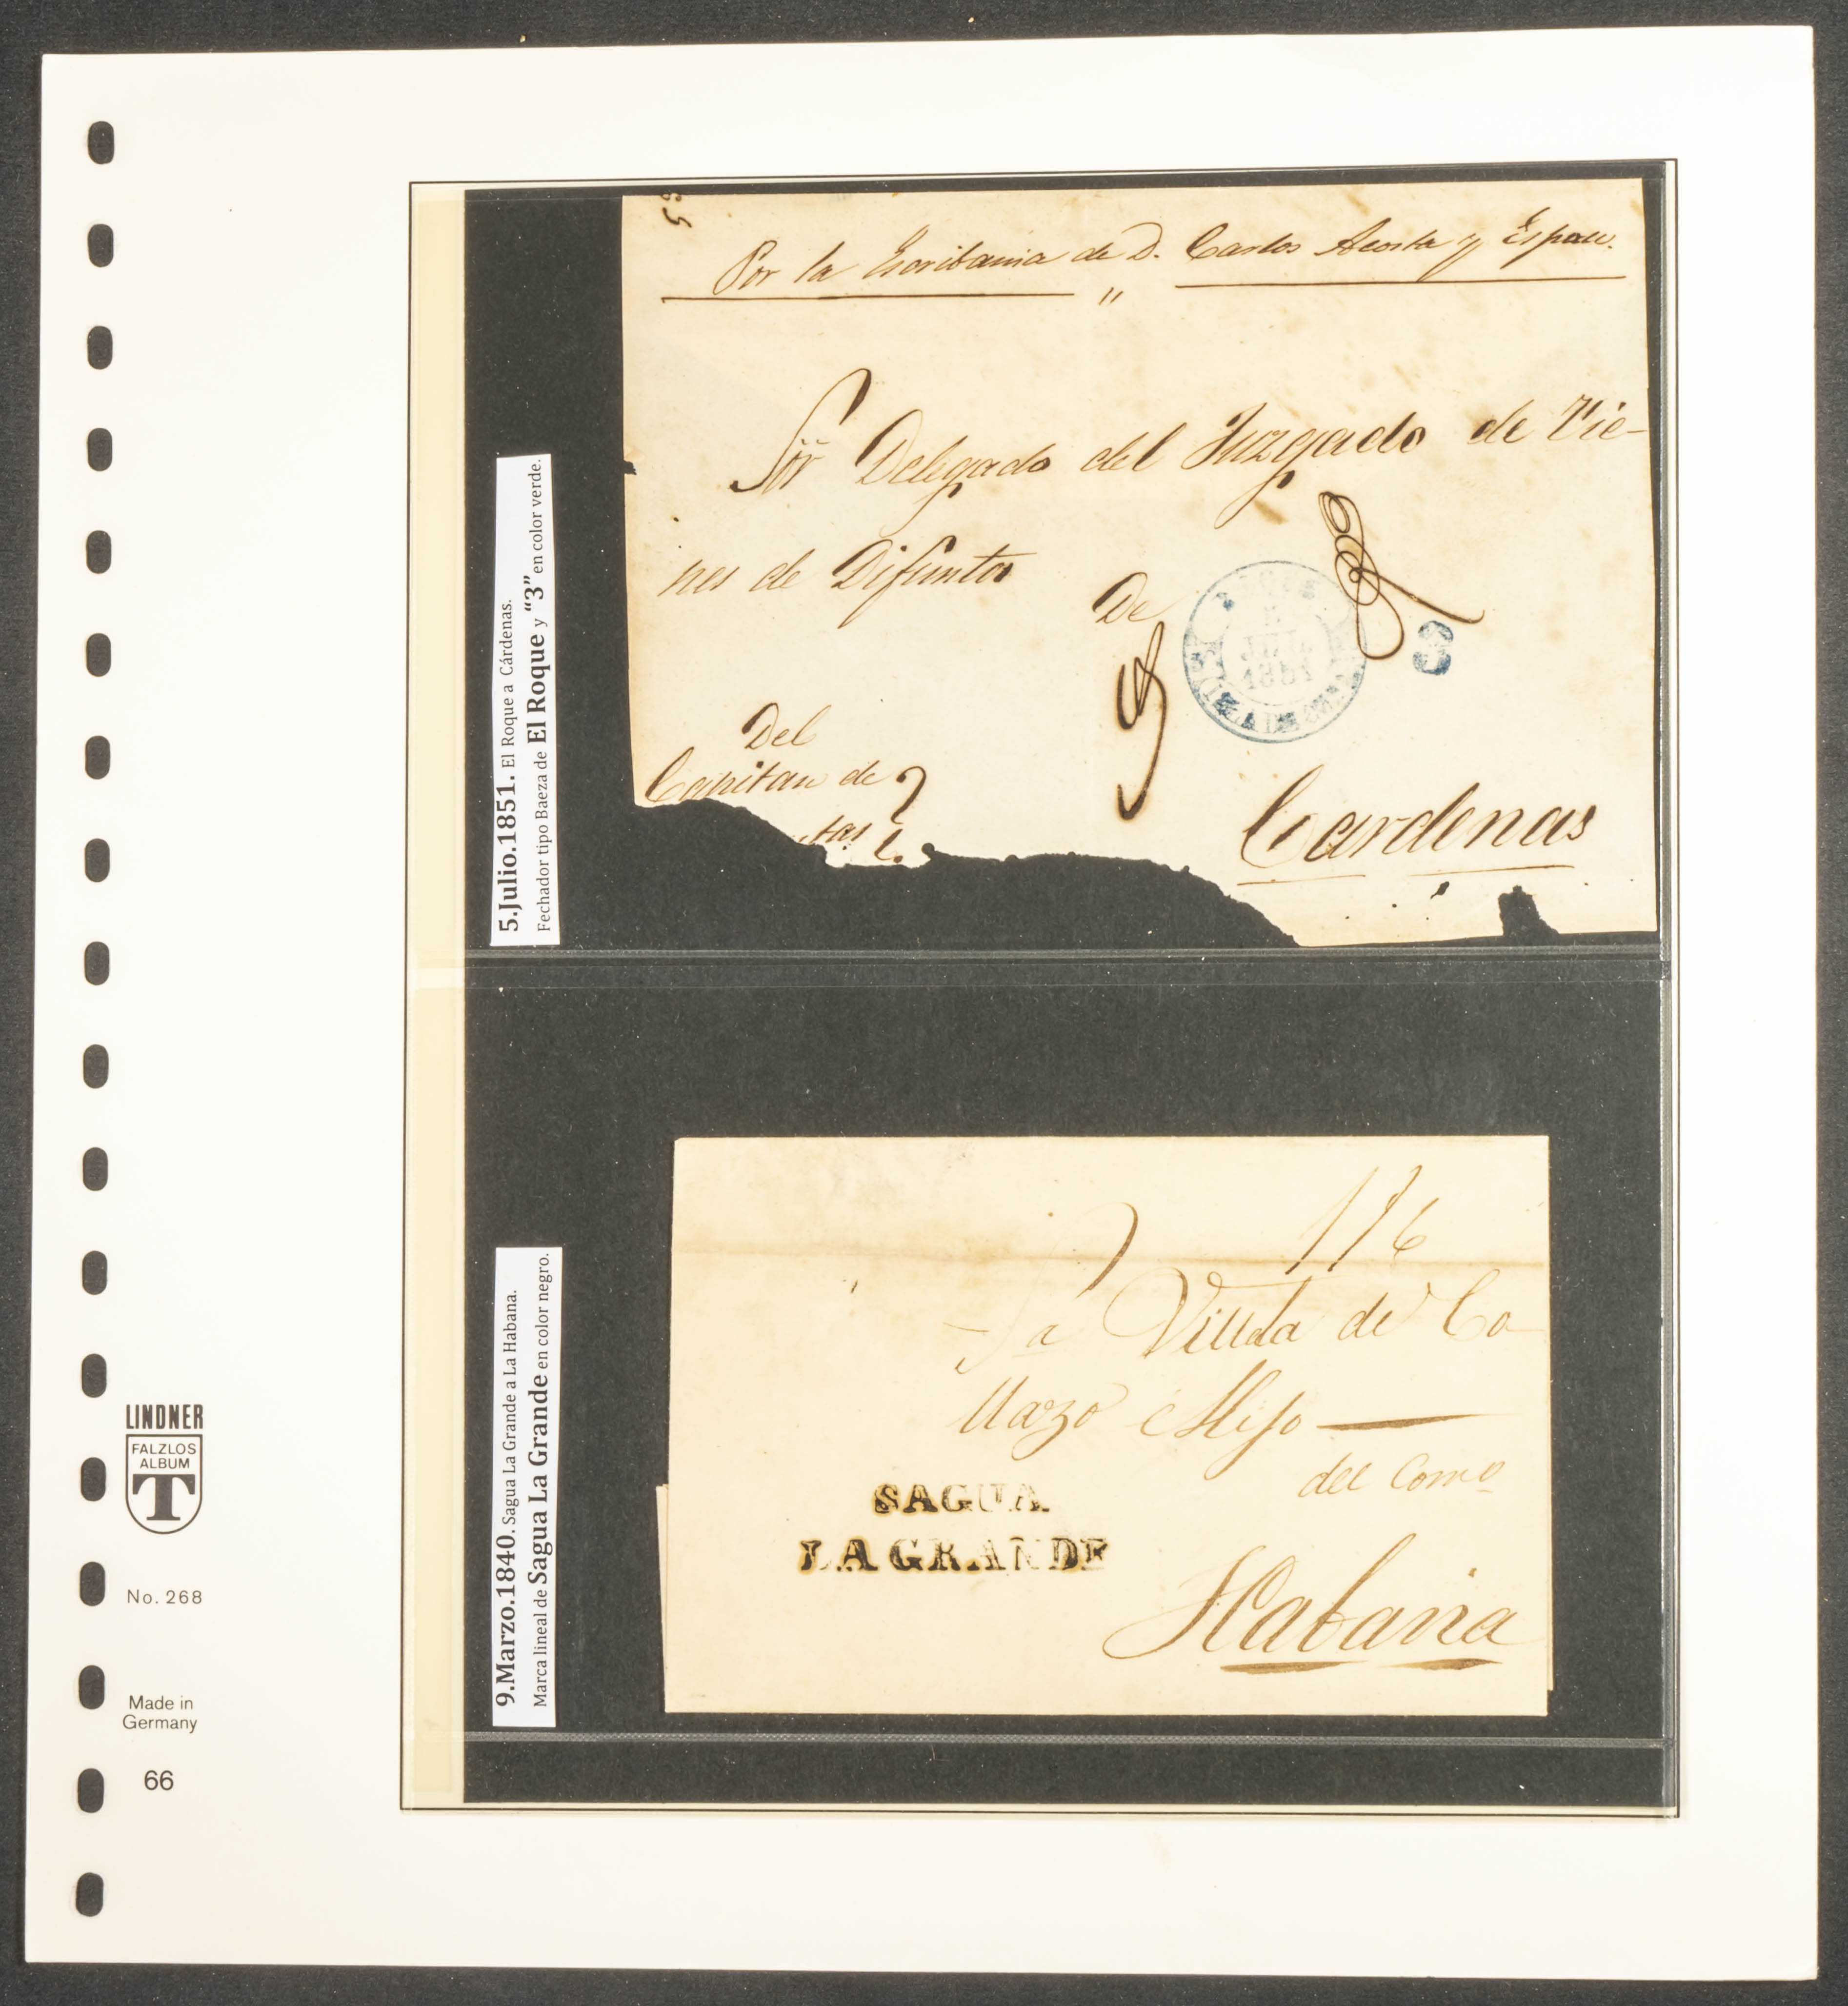 Por la Escribania de D. Carlos Acosta y
Sör Delegado del Juzgado de Vie-
nes de Difuntos
De
JUL
1851
3
Del
Capitan de
Cardenas
5.Julio.1851. El Roque a Cárdenas.
Fechador tipo Baeza de El Roque y “3” en color verde.
116
Viuda de Co
llazo é Hijo
del Como
SAGUA
LA GRANDE
Habana
9.Marzo.1840. Sagua La Grande a La Habana.
Marca lineal de Sagua La Grande en color negro.
LINDNER
FALZLOS
ALBUM
T
No. 268
Made in
Germany
66